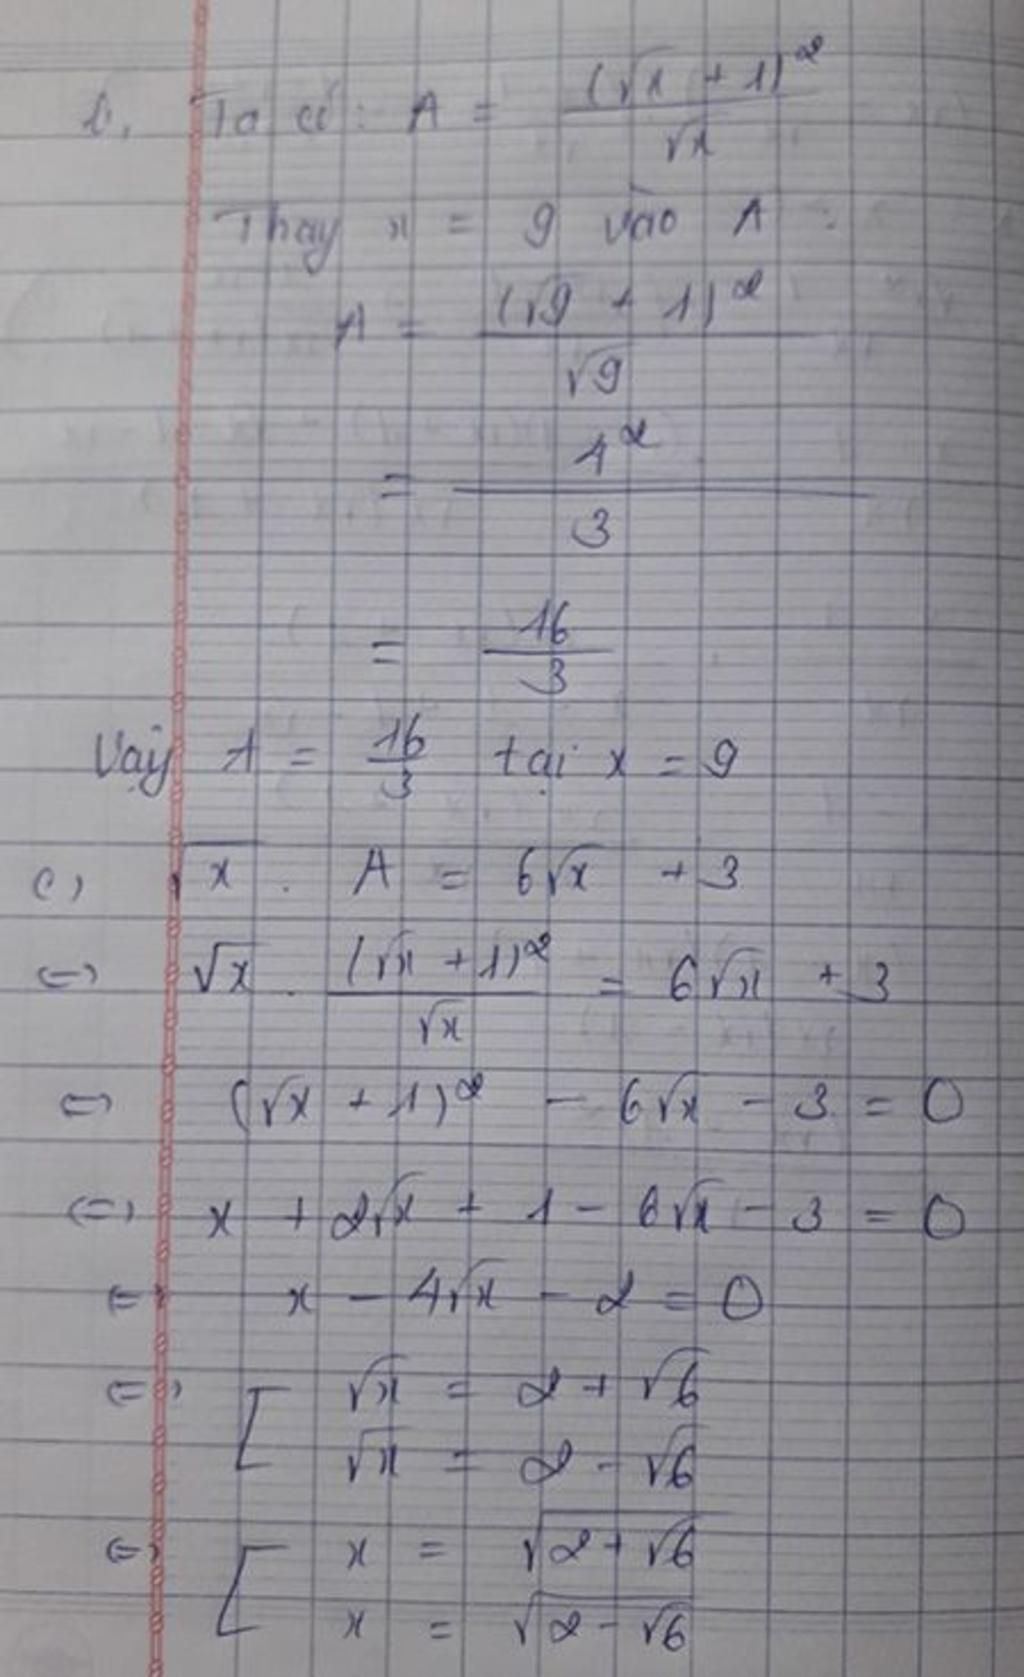 b, Ta có: A = (√x + 1)² / √x
Thay x = 9 vào A :
A = (√9 + 1)² / √9
= 4² / 3
= 16 / 3
Vậy A = 16/3 tại x = 9
c) √x . A = 6√x + 3
<=> √x . (√x + 1)² / √x = 6√x + 3
<=> (√x + 1)² - 6√x - 3 = 0
<=> x + 2√x + 1 - 6√x - 3 = 0
<=> x - 4√x - 2 = 0
<=> [ √x = 2 + √6
√x = 2 - √6
<=> [ x = √(2 + √6)
x = √(2 - √6)